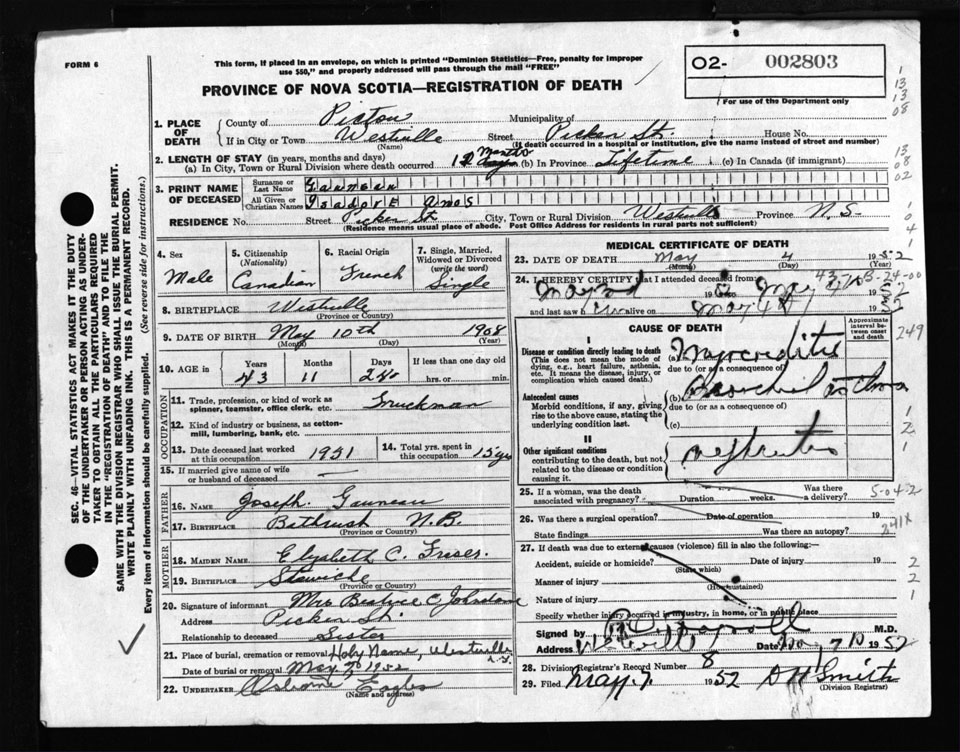 FORM 6
This form, if placed in an envelope, on which is printed "Dominion Statistics—Free, penalty for improper
use $50," and properly addressed will pass through the mail "FREE"
O2- 002803
For use the Department only
PROVINCE OF NOVA SCOTIA—REGISTRATION OF DEATH
1. PLACE OF DEATH
County of Pictou Municipality of
If in City or Town Westville Street Picken St. House No.
(Name) (If death occurred in a hospital or institution, give the name instead of street and number)
2. LENGTH OF STAY (in years, months and days)
(a) In City, Town or Rural Division where death occurred 12 months (b) In Province Lifetime (c) In Canada (if immigrant)
3. PRINT NAME OF DECEASED
Surname or Last Name Gauneau
All Given or Christian Names Isadore Amos
RESIDENCE No. Street Picken St. City, Town or Rural Division Westville Province N.S.
(Residence means usual place of abode. Post Office Address for residents in rural parts not sufficient)
4. Sex Male
5. Citizenship (Nationality) Canadian
6. Racial Origin French
7. Single, Married, Widowed or Divorced (write the word) Single
8. BIRTHPLACE Westville
(Province or Country)
9. DATE OF BIRTH May 10th 1908
(Month) (Day) (Year)
10. AGE in Years Months Days If less than one day old
43 11 hrs. or min.
OCCUPATION
11. Trade, profession, or kind of work as
spinner, teamster, office clerk, etc. Truckman
12. Kind of industry or business, as cotton-
mill, lumbering, bank, etc.
13. Date deceased last worked at this occupation 1951
14. Total yrs. spent in this occupation 15 yrs
15. If married give name of wife
or husband of deceased
FATHER
16. Name Joseph Gauneau
17. BIRTHPLACE Bathrust N.B.
(Province or Country)
MOTHER
18. MAIDEN NAME Elizabeth C.
19. BIRTHPLACE
(Province or Country)
20. Signature of informant Mrs Beatrice C Johnstone
Address Picken St.
Relationship to deceased Sister
21. Place of burial, cremation or removal Holy Name, Westville N.S.
Date of burial or removal May 7, 1952
22. UNDERTAKER Eagles
(Name and address)
SEC. 46—VITAL STATISTICS ACT MAKES IT THE DUTY
OF THE UNDERTAKER OR PERSON ACTING AS UNDER-
TAKER TO OBTAIN ALL THE PARTICULARS REQUIRED
IN THE "REGISTRATION OF DEATH" AND TO FILE THE
SAME WITH THE DIVISION REGISTRAR WHO SHALL ISSUE THE BURIAL PERMIT.
WRITE PLAINLY WITH UNFADING INK. THIS IS A PERMANENT RECORD.
Every item of information should be carefully supplied. (See reverse side for instructions.)
MEDICAL CERTIFICATE OF DEATH
23. DATE OF DEATH May 4 1952
(Month) (Day) (Year)
24. I HEREBY CERTIFY that I attended deceased from:
May
and last saw alive on May 4
CAUSE OF DEATH
Approximate interval between onset and death
I
Disease or condition directly leading to death
(This does not mean the mode of
dying, e.g., heart failure, asthenia,
etc. It means the disease, injury, or
complication which caused death.)
(a) Myocarditis
due to (or as a consequence of)
Antecedent causes
Morbid conditions, if any, giving
rise to the above cause, stating the
underlying condition last.
(b) Bronchial asthma
due to (or as a consequence of)
(c)
II
Other significant conditions
contributing to the death, but not
related to the disease or condition
causing it.
Nephritis
25. If a woman, was the death
associated with pregnancy? Duration weeks. Was there a delivery?
26. Was there a surgical operation? Date of operation
State findings Was there an autopsy?
27. If death was due to external causes (violence) fill in also the following:—
Accident, suicide or homicide? Date of injury 19
(State which)
Manner of injury
(How sustained)
Nature of injury
Specify whether injury occurred in industry, in home, or in public place
Signed by M.D.
Address Westville Date May 7 1952
28. Division Registrar's Record Number 8
29. Filed May 7. 1952 D H Smith
(Division Registrar)